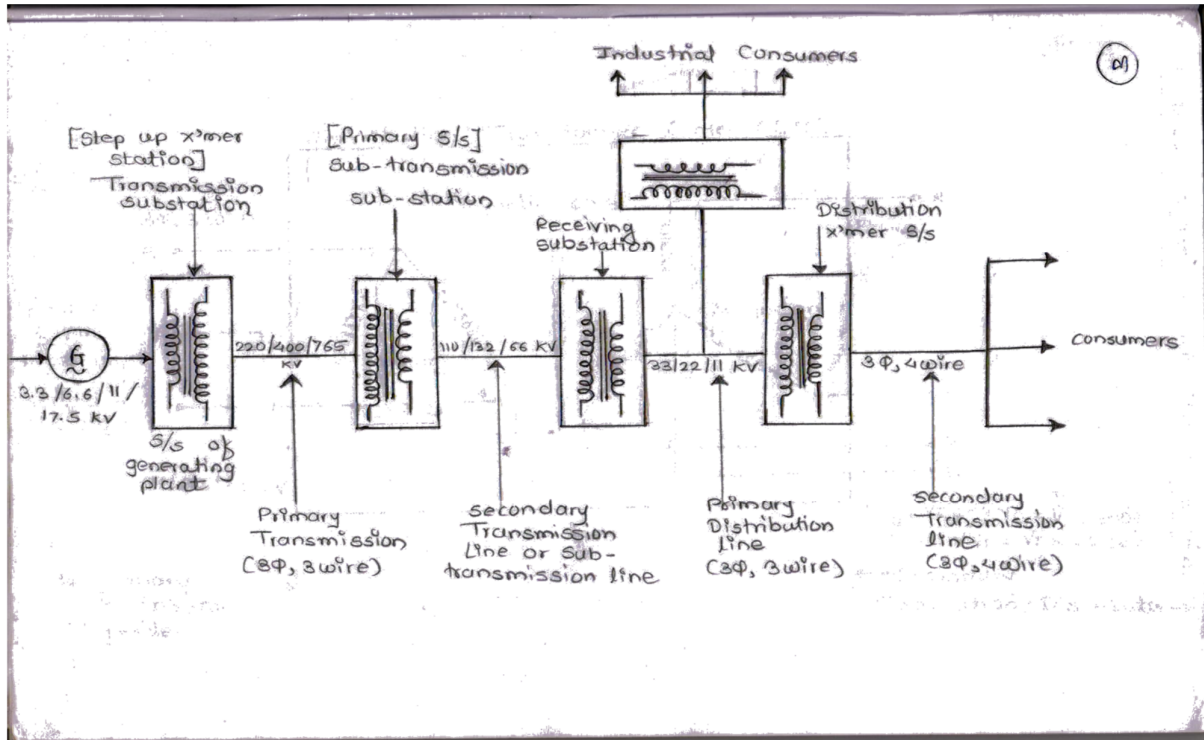 Industrial Consumers
3
[Step up x'mer
station]
Transmission
substation
[Primary S/s]
Sub-transmission
sub-station
Receiving
substation
Distribution
x'mer S/s
G
3.3/6.6/11/
17.5 KV
220/400/765
KV
110/132/66 KV
33/22/11 KV
3Φ, 4wire
consumers
S/s of
generating
plant
Primary
Transmission
(3Φ, 3wire)
secondary
Transmission
Line or Sub-
transmission line
Primary
Distribution
line
(3Φ, 3wire)
secondary
Transmission
line
(3Φ, 4wire)